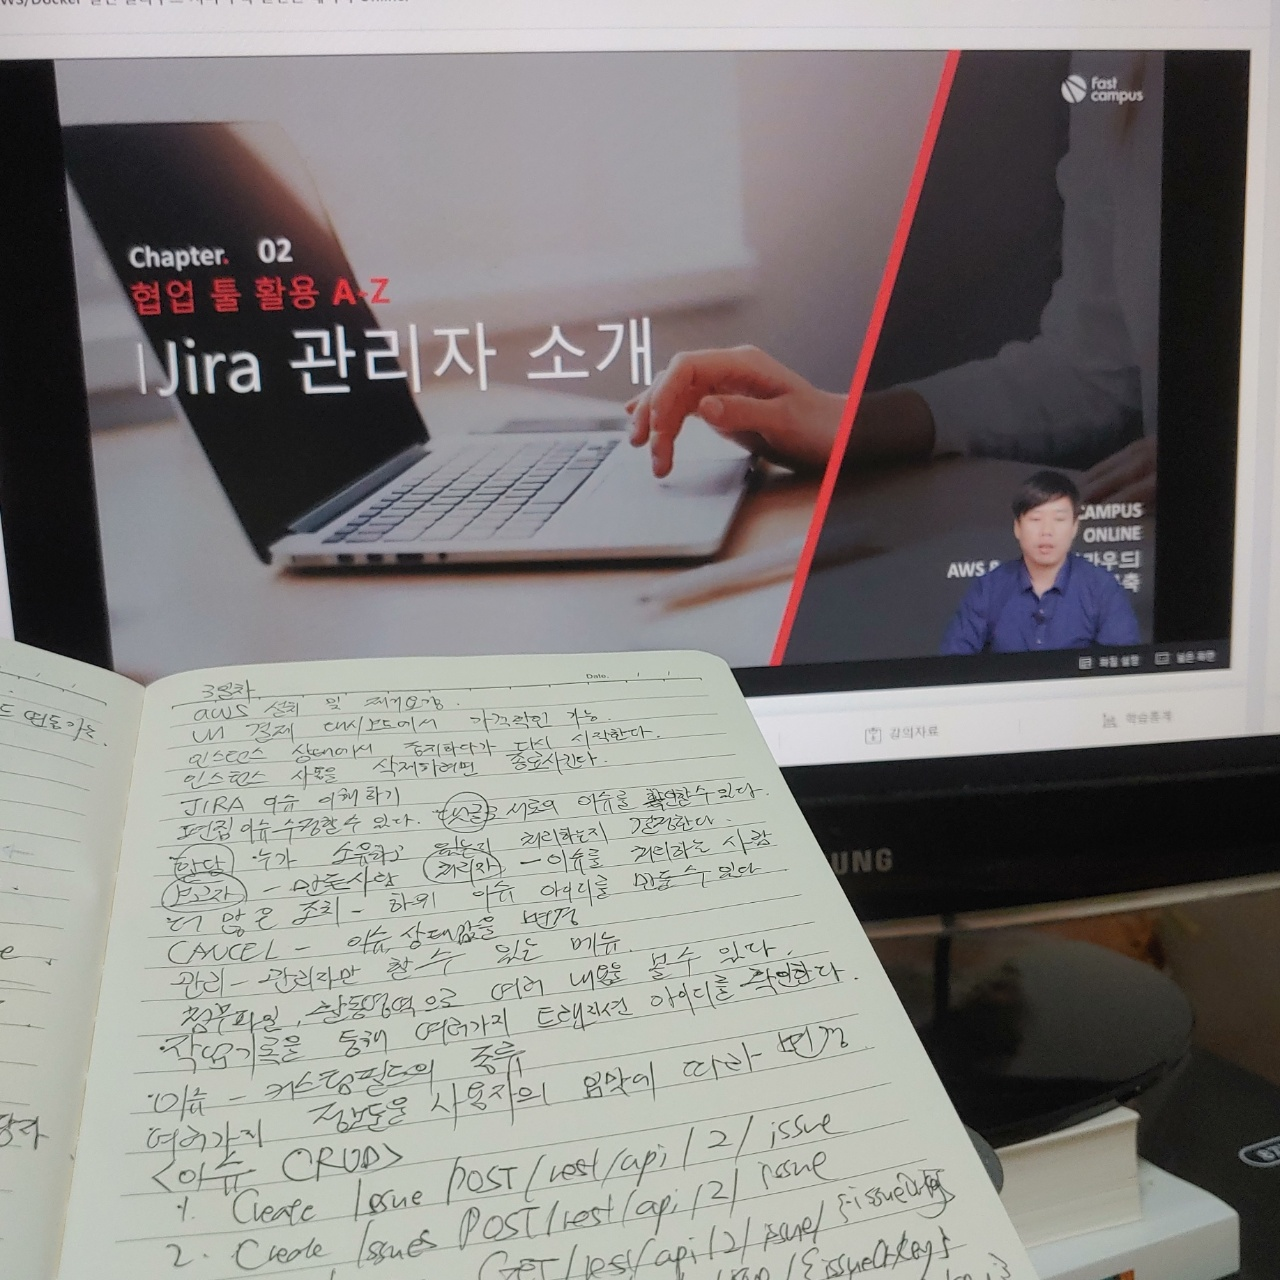 Fast campus
Chapter. 02
협업 툴 활용 A-Z
Jira 관리자 소개
CAMPUS
ONLINE
AWS
강의자료
학습통계
3일차
aws 설치 및 제거요강.
UI 결제 대시보드에서 가격확인 가능.
인스턴스 상태에서 중지하다가 다시 시작한다.
인스턴스 사용을 삭제하려면 종료시킨다.
JIRA 이슈 이해하기
편집 이슈 수정할 수 있다. 댓글 서로의 이슈를 확인할 수 있다.
할당 누가 소유하고 있는지 처리하는지 결정한다.
보고자 - 만든사람 처리자 - 이슈를 처리하는 사람
더 많은 조치 - 하위 이슈 아이디를 만들 수 있다
CANCEL - 이슈 상태값을 변경
관리 - 관리자만 할 수 있는 메뉴.
첨부파일, 활동영역으로 여러 내용을 볼 수 있다.
작업기록을 통해 여러가지 트랜지션 아이디를 확인한다.
이슈 - 커스텀필드의 종류
여러가지 정보들을 사용자의 입맛에 따라 변경
<이슈 CRUD>
1. Create Issue POST/rest/api/2/issue
2. Create Issues POST/rest/api/2/issue
GET/rest/api/2/issue/{issueOrKey}
{issueOrKey}